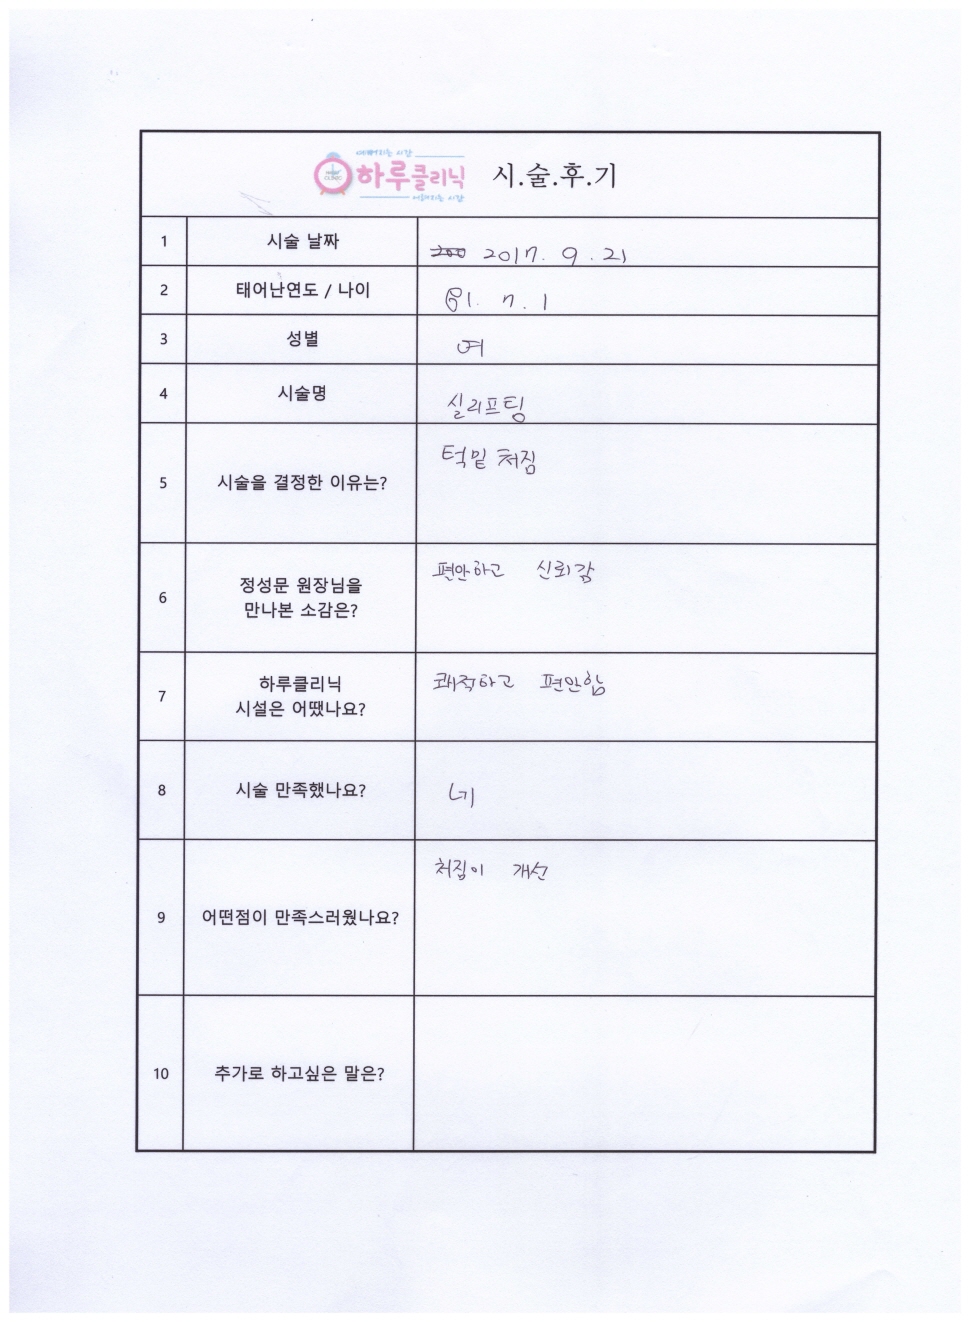 예뻐지는 시간
하루클리닉 시.술.후.기
어려지는 시간
1 시술 날짜 2017. 9. 21
2 태어난연도 / 나이 61. 7. 1
3 성별 여
4 시술명 실리프팅
5 시술을 결정한 이유는? 턱밑 처짐
6 정성문 원장님을
만나본 소감은? 편안하고 신뢰감
7 하루클리닉
시설은 어땠나요? 쾌적하고 편안함
8 시술 만족했나요? 네
9 어떤점이 만족스러웠나요? 처짐이 개선
10 추가로 하고싶은 말은?